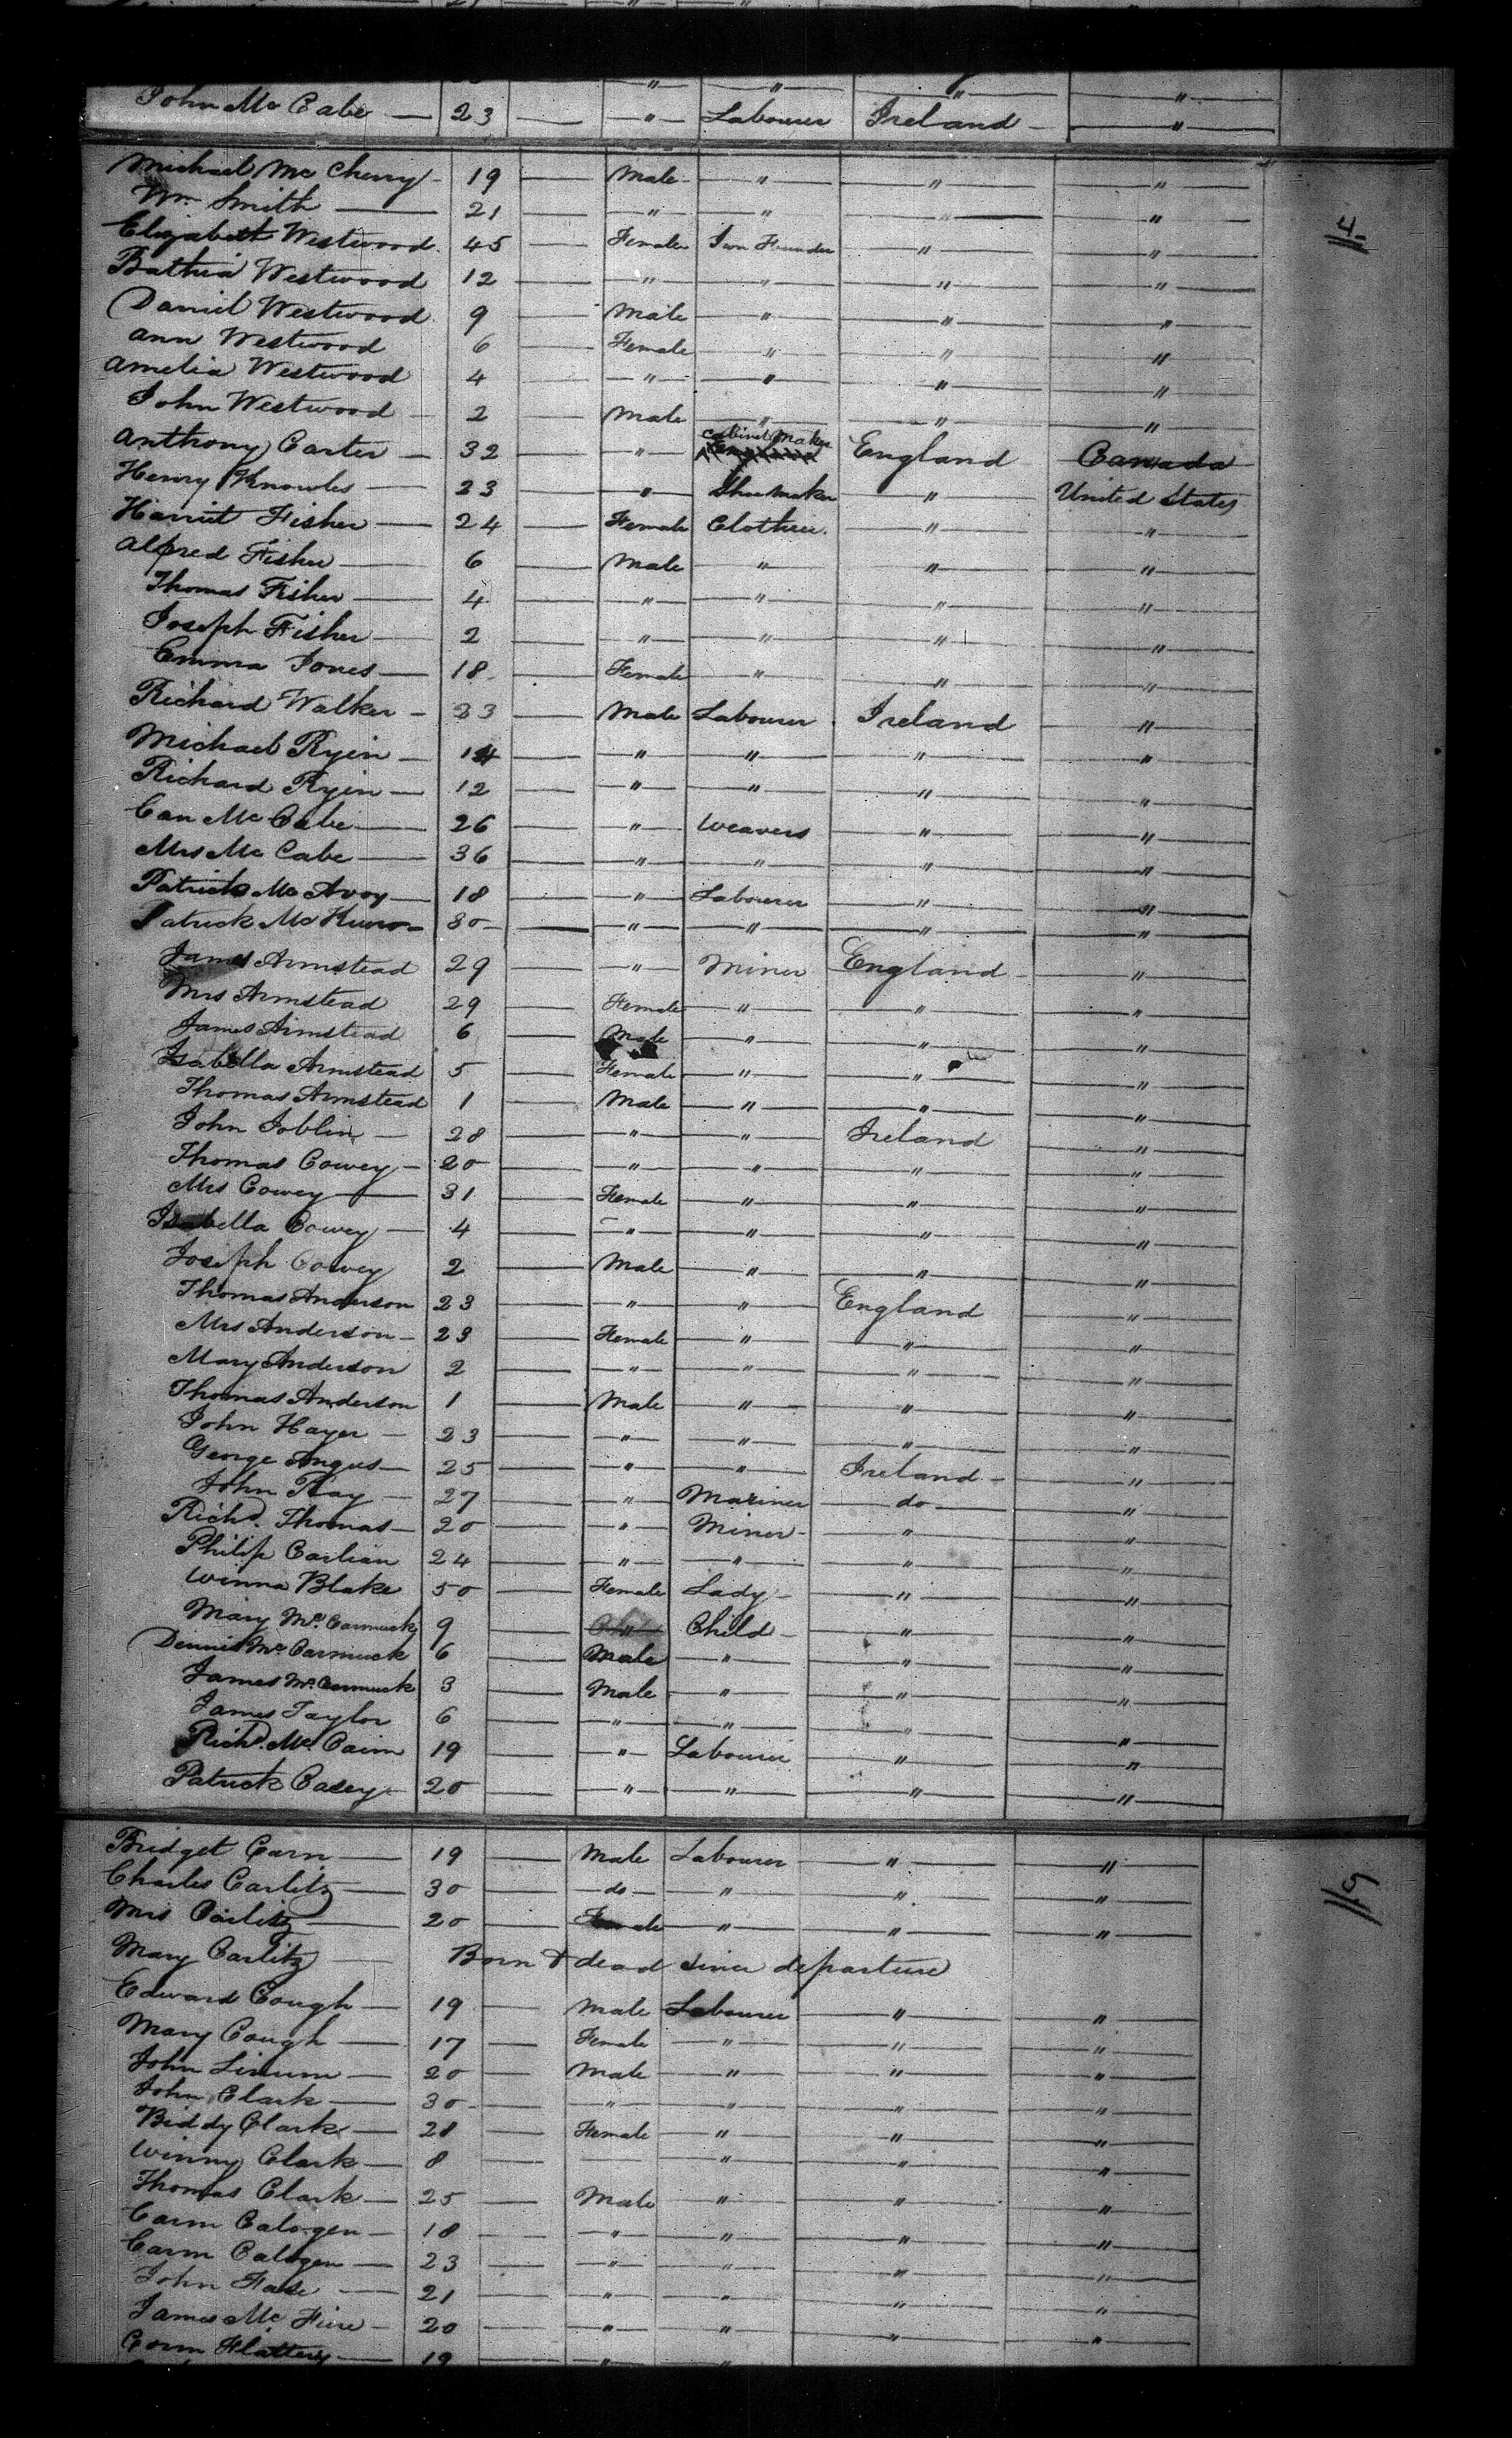 " " " "
John Mc Cabe — 23 — " — Labourer Ireland — "
Michael Mc Cherry — 19 — Male " " "
4
Wm Smith — 21 — " " " "
Elizabeth Westwood 45 — Female Iron Founder " "
Bathia Westwood 12 — " " " "
Daniel Westwood 9 — Male " " "
Ann Westwood 6 — Female " " "
Amelia Westwood 4 — " " " "
John Westwood — 2 — Male " " "
Anthony Carter — 32 — " Cabinet Maker England Canada
Henry Knowles — 23 — " Shoe Maker " United States
Harriet Fisher — 24 — Female Clothier " "
Alfred Fisher — 6 — Male " " "
Thomas Fisher — 4 — " " " "
Joseph Fisher — 2 — " " " "
Emma Jones — 18 — Female " " "
Richard Walker — 23 — Male Labourer Ireland "
Michael Ryin — 14 — " " " "
Richard Ryin — 12 — " " " "
Can Mc Cabe — 26 — " Weavers " "
Mrs Mc Cabe — 36 — " " " "
Patrick Mc Avoy — 18 — " Labourer " "
Patrick 30 — " " " "
James Armstead 29 — " Miner England "
Mrs Armstead 29 — Female " " "
James Armstead 6 — Male " " "
Isabella Armstead 5 — Female " " "
Thomas Armstead 1 — Male " " "
John Joblin — 28 — " " Ireland "
Thomas Cowey — 20 — " " " "
Mrs Cowey — 31 — Female " " "
Isabella Cowey — 4 — " " " "
Joseph Cowey 2 — Male " " "
Thomas Anderson 23 — " " England "
Mrs Anderson — 23 — Female " " "
Mary Anderson 2 — " " " "
Thomas Anderson 1 — Male " " "
John Hayer — 23 — " " " "
George Angus — 25 — " " Ireland "
John Ray — 27 — " Mariner do "
Richd. Thomas — 20 — " Miner " "
Philip Carlian 24 — " " " "
Winna Blake 50 — Female Lady " "
Mary Mc. Cormuck 9 — " Child " "
Dennis Mc Cormuck 6 — Male " " "
James Mc. Cormuck 3 — Male " " "
James Taylor 6 — " " "
Richd. Mc. Cairn 19 — " Labourer " "
Patrick Casey — 20 — " " " "
Bridget Carn — 19 — Male Labourer " "
5
Charles Carlitz — 30 — do " " "
Mrs Carlitz — 20 — Female " " "
Mary Carlitz — Born & dead since departure
Edward Cough — 19 — Male Labourer " "
Mary Cough — 17 — Female " " "
John — 20 — Male " " "
John Clark — 30 — " " " "
Biddy Clark — 28 — Female " " "
Winny Clark — 8 — " " "
Thomas Clark — 25 — Male " " "
Carm Calogen — 18 — " " " "
Carm Calogen — 23 — " " " "
John — 21 — " " " "
James Mc — 20 — " " " "
Flattery — 19 — " "